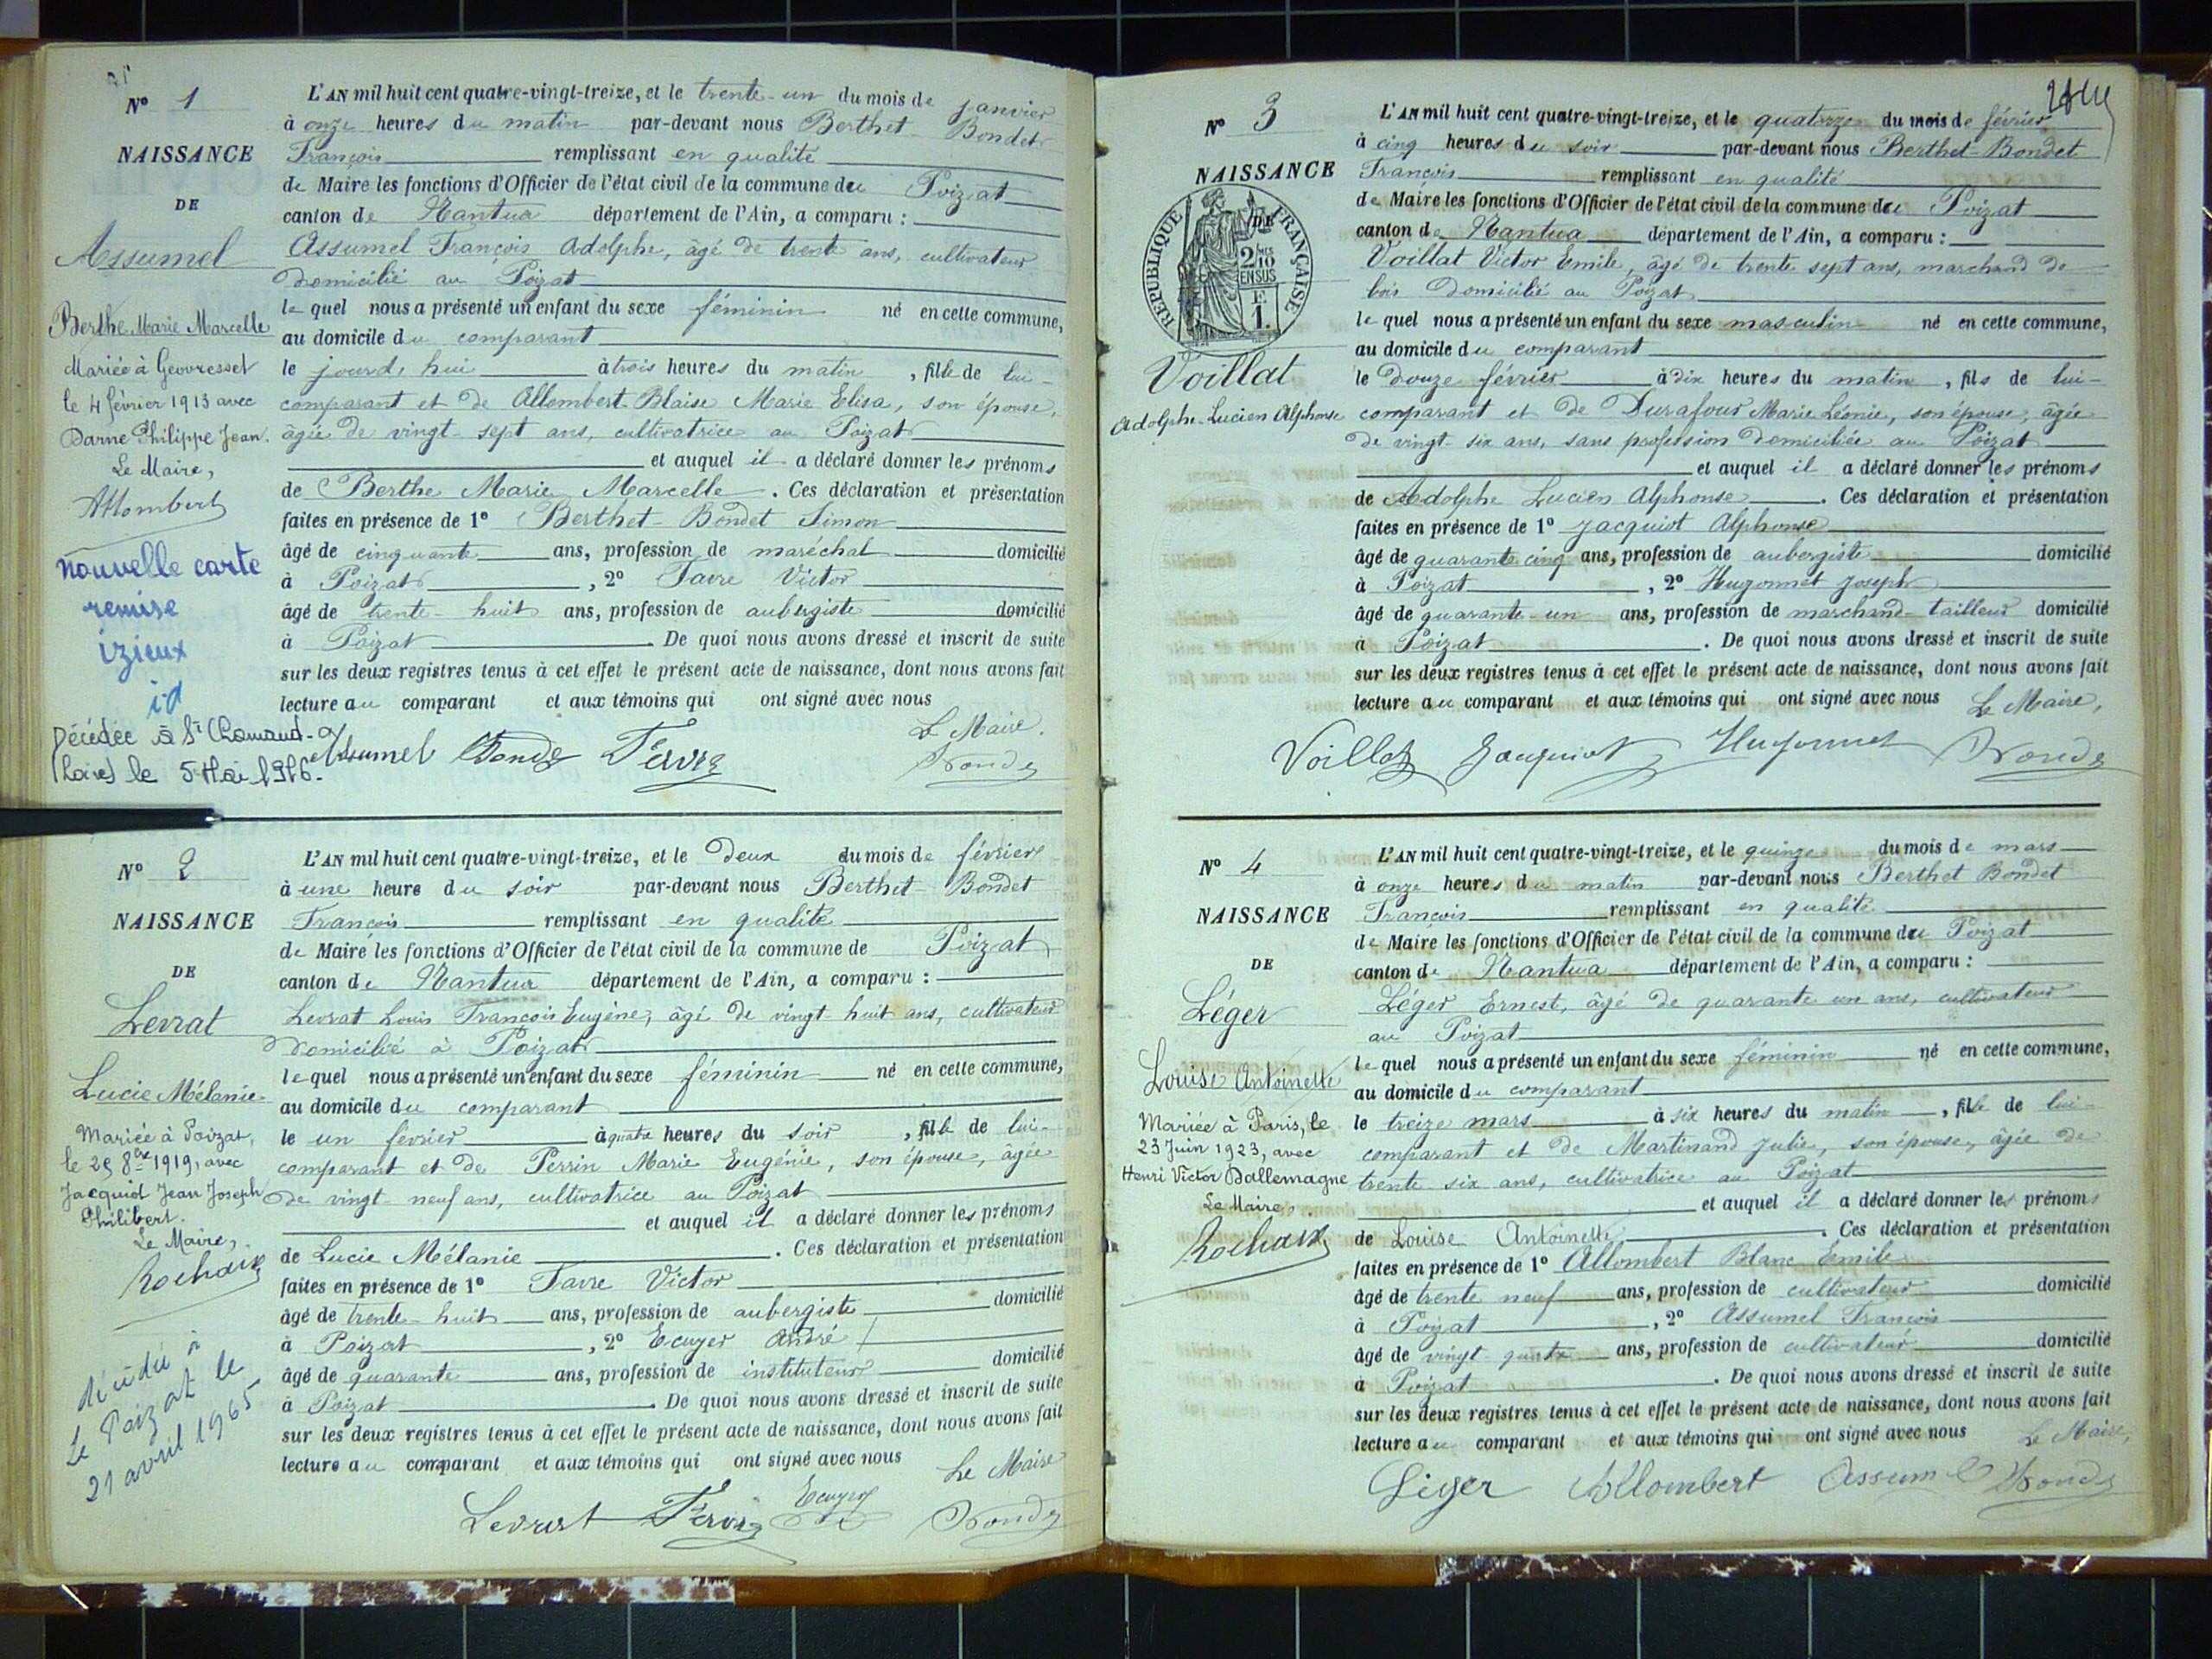 Nº 1
NAISSANCE
DE
Assumel
Berthe Marie Marcelle
Mariée à Geovresset
le 4 février 1913 avec
Darne Philippe Jean.
Le Maire,
Allombert
nouvelle carte
remise
izieux
id
Décédée à St Chamond
(Loire) le 5 Mai 1976.
L'AN mil huit cent quatre-vingt-treize, et le trente-un du mois de janvier
à onze heures du matin par-devant nous Berthet-Bondet
François remplissant en qualité
de Maire les fonctions d'Officier de l'état civil de la commune du Poizat
canton de Nantua département de l'Ain, a comparu :
Assumel François Adolphe, âgé de trente ans, cultivateur
domicilié au Poizat
lequel nous a présenté un enfant du sexe féminin né en cette commune,
au domicile du comparant
le jourd'hui à trois heures du matin, fille de lui-
comparant et de Allombert-Blaise Marie Elisa, son épouse,
âgée de vingt-sept ans, cultivatrice au Poizat
et auquel il a déclaré donner les prénoms
de Berthe Marie Marcelle. Ces déclaration et présentation
faites en présence de 1º Berthet-Bondet Simon
âgé de cinquante ans, profession de maréchal domicilié
à Poizat, 2º Favre Victor
âgé de trente-huit ans, profession de aubergiste domicilié
à Poizat. De quoi nous avons dressé et inscrit de suite
sur les deux registres tenus à cet effet le présent acte de naissance, dont nous avons fait
lecture au comparant et aux témoins qui ont signé avec nous
Le Maire.
Assumel
Nº 2
NAISSANCE
DE
Levrat
Lucie Mélanie
Mariée à Poizat,
le 29 8bre 1919, avec
Jacquiot Jean Joseph
Philibert.
Le Maire,
Rochaix
décédée à
Le Poizat le
21 avril 1965
L'AN mil huit cent quatre-vingt-treize, et le deux du mois de février
à une heure du soir par-devant nous Berthet-Bondet
François remplissant en qualité
de Maire les fonctions d'Officier de l'état civil de la commune de Poizat
canton de Nantua département de l'Ain, a comparu :
Levrat Louis François Eugène, âgé de vingt-huit ans, cultivateur
domicilié à Poizat
lequel nous a présenté un enfant du sexe féminin né en cette commune,
au domicile du comparant
le un février à quatre heures du soir, fille de lui-
comparant et de Perrin Marie Eugénie, son épouse, âgée
de vingt-neuf ans, cultivatrice au Poizat
et auquel il a déclaré donner les prénoms
de Lucie Mélanie. Ces déclaration et présentation
faites en présence de 1º Favre Victor
âgé de trente-huit ans, profession de aubergiste domicilié
à Poizat, 2º Ecuyer André
âgé de quarante ans, profession de instituteur domicilié
à Poizat. De quoi nous avons dressé et inscrit de suite
sur les deux registres tenus à cet effet le présent acte de naissance, dont nous avons fait
lecture au comparant et aux témoins qui ont signé avec nous
Le Maire
Levrat Ecuyer
Nº 3
NAISSANCE
DE
RÉPUBLIQUE FRANÇAISE
2/10 EN SUS
1 F.
Voillat
Adolphe-Lucien Alphonse
L'AN mil huit cent quatre-vingt-treize, et le quatorze du mois de février
à cinq heures du soir par-devant nous Berthet-Bondet
François remplissant en qualité
de Maire les fonctions d'Officier de l'état civil de la commune du Poizat
canton de Nantua département de l'Ain, a comparu :
Voillat Victor Emile, âgé de trente sept ans, marchand de
bois domicilié au Poizat
lequel nous a présenté un enfant du sexe masculin né en cette commune,
au domicile du comparant
le douze février à dix heures du matin, fils de lui-
comparant et de Durafour Marie Léonie, son épouse, âgée
de vingt-six ans, sans profession domiciliée au Poizat
et auquel il a déclaré donner les prénoms
de Adolphe Lucien Alphonse. Ces déclaration et présentation
faites en présence de 1º Jacquiot Alphonse
âgé de quarante cinq ans, profession de aubergiste domicilié
à Poizat, 2º Hugonnet Joseph
âgé de quarante-un ans, profession de marchand-tailleur domicilié
à Poizat. De quoi nous avons dressé et inscrit de suite
sur les deux registres tenus à cet effet le présent acte de naissance, dont nous avons fait
lecture au comparant et aux témoins qui ont signé avec nous
Le Maire,
Voillat Jacquiot Hugonnet
Nº 4
NAISSANCE
DE
Léger
Louise Antoinette
Mariée à Paris, le
23 Juin 1923, avec
Henri Victor Dallemagne
Le Maire,
Rochaix
L'AN mil huit cent quatre-vingt-treize, et le quinze du mois de mars
à onze heures du matin par-devant nous Berthet Bondet
François remplissant en qualité
de Maire les fonctions d'Officier de l'état civil de la commune du Poizat
canton de Nantua département de l'Ain, a comparu :
Léger Ernest, âgé de quarante un ans, cultivateur
au Poizat
lequel nous a présenté un enfant du sexe féminin né en cette commune,
au domicile du comparant
le treize mars à six heures du matin, fille de lui-
comparant et de Martinand Julie, son épouse, âgée de
trente-six ans, cultivatrice au Poizat
et auquel il a déclaré donner les prénoms
de Louise Antoinette. Ces déclaration et présentation
faites en présence de 1º Allombert Blanc Emile
âgé de trente neuf ans, profession de cultivateur domicilié
à Poizat, 2º Assumel François
âgé de vingt-quatre ans, profession de cultivateur domicilié
à Poizat. De quoi nous avons dressé et inscrit de suite
sur les deux registres tenus à cet effet le présent acte de naissance, dont nous avons fait
lecture au comparant et aux témoins qui ont signé avec nous
Le Maire,
Léger Allombert Assumel